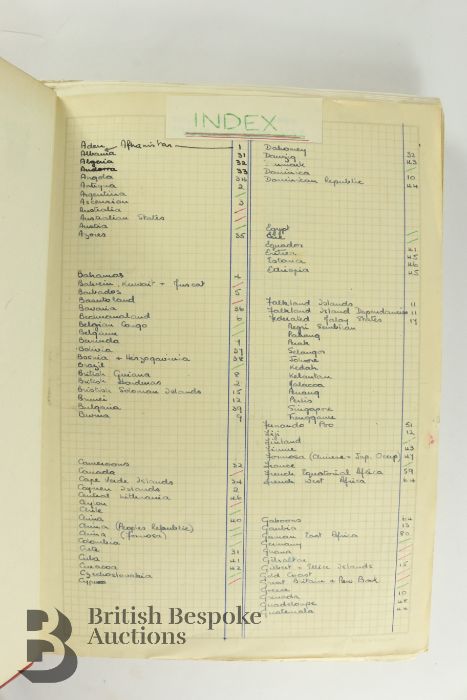 INDEX
Aden, Afghanistan 1
Albania 31
Algeria 32
Andorra 33
Angola 34
Antigua 2
Argentina
Ascension 3
Australia
Australian States
Austria
Azores 35
Bahamas 4
Bahrein, Kuwait + Muscat
Barbados 5
Basutoland
Bavaria 36
Bechuanaland 6
Belgian Congo
Belgium
Bermuda 7
Bolivia 37
Bosnia + Herzegovinia 38
Brazil
British Guiana 8
British Honduras 2
British Solomon Islands 15
Brunei 12
Bulgaria 39
Burma 9
Cameroons 22
Canada
Cape Verde Islands 24
Cayman Islands 2
Central Lithuania 46
Ceylon
Chile
China 40
China (Peoples Republic)
China (Formosa)
Colombia
Crete 31
Cuba 41
Curacao 42
Czechoslovakia
Cyprus
Dahomey
Danzig 32
Denmark 43
Dominica 10
Dominican Republic 44
Egypt
Eire
Equador 21
Eritrea 45
Estonia 46
Ethiopia 45
Falkland Islands 11
Falkland Island Dependancies 11
Federated Malay States 14
Negri Sembilan
Pahang
Perak
Selangor
Johore
Kedah
Kelantan
Malacca
Penang
Perlis
Singapore
Trengganu
Fernando Poo 51
Fiji 12
Finland
Fiume 43
Formosa (Chinese + Jap. Occup) 47
France
French Equatorial Africa 59
French West Africa 64
Gaboons 64
Gambia 13
German East Africa 80
Germany
Ghana
Gibraltar
Gilbert + Ellice Islands 15
Gold Coast
Great Britain + Rew Book
Greece
Grenada 10
Guadeloupe 48
Guatemala 44
B British Bespoke
Auctions